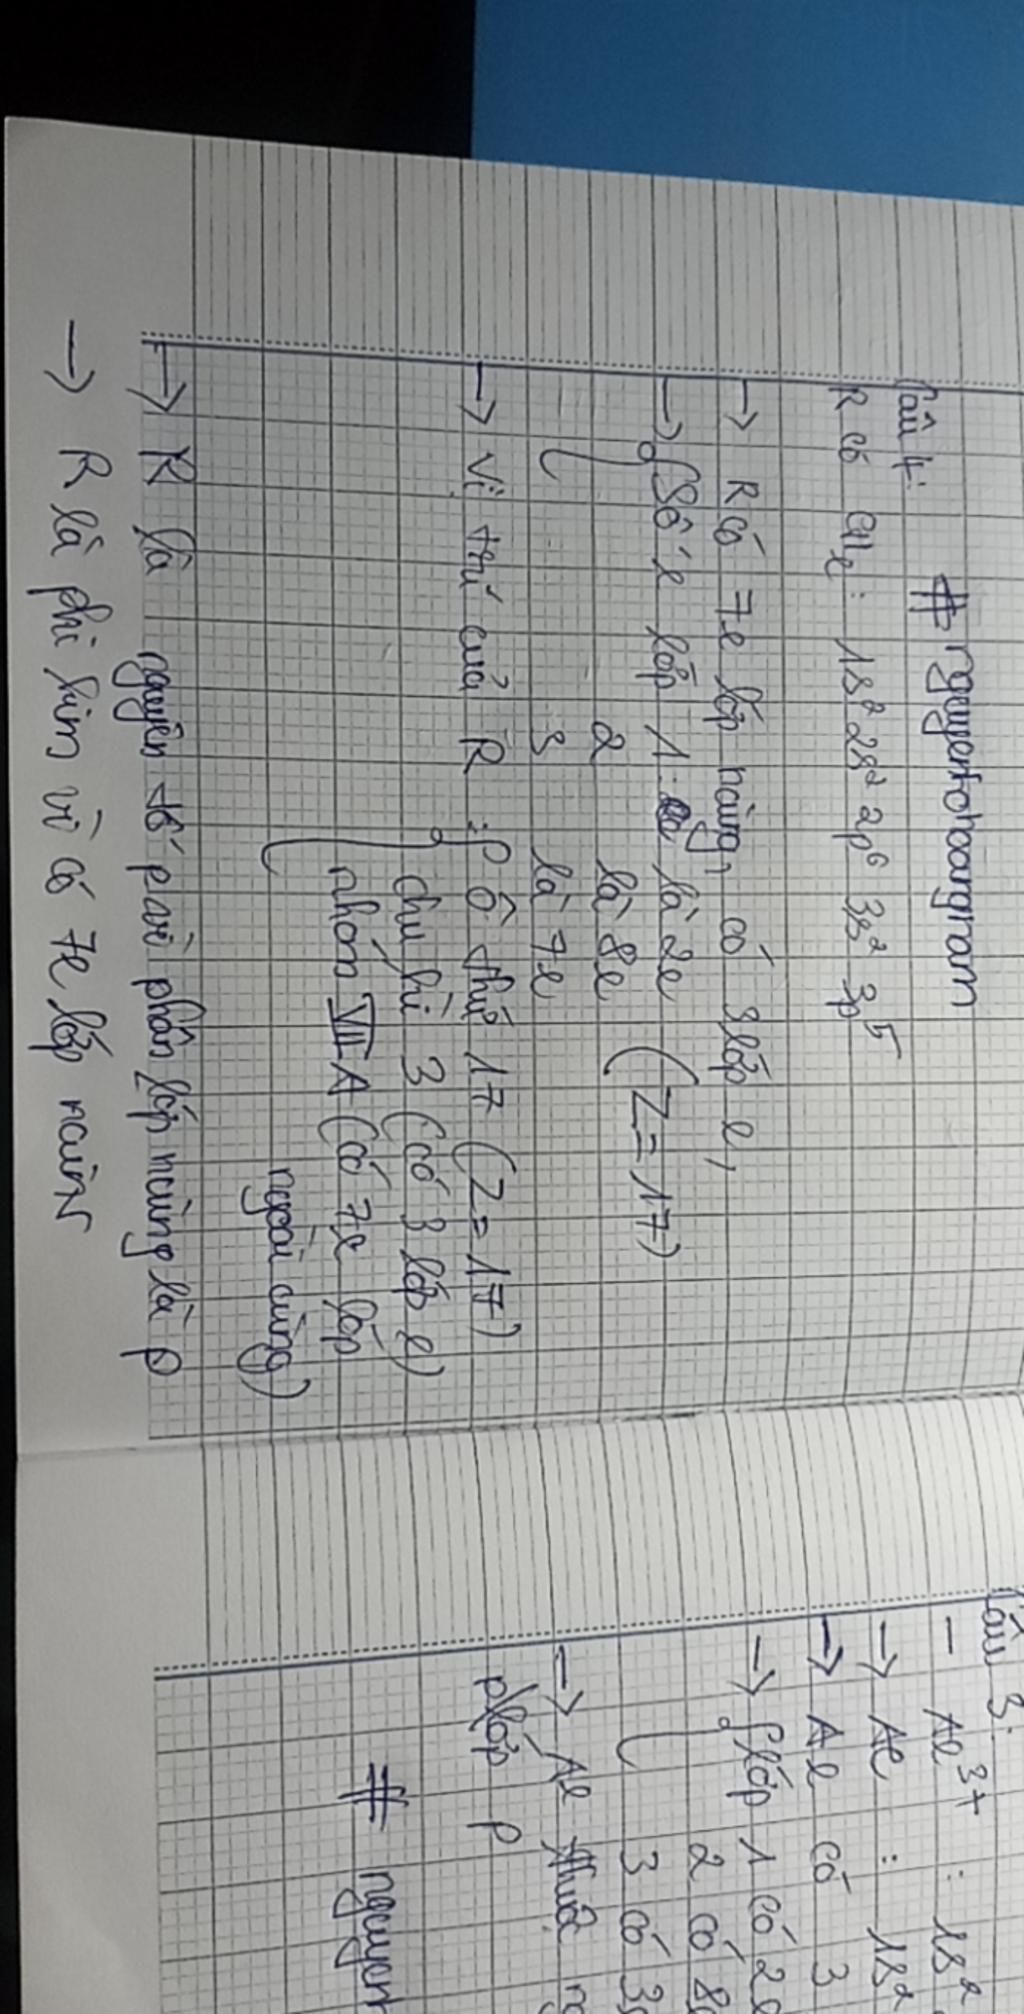 # nguyenhoangnam
Câu 4:
R có CHe: 1s² 2s² 2p⁶ 3s² 3p⁵
→ R có 7e lớp ncùng, có 3 lớp e,
→ Số e lớp 1 là 2e (Z=17)
2 là 8e
3 là 7e
→ Vị trí của R: ô thứ 17 (Z=17)
chu kì 3 (có 3 lớp e)
nhóm VII A (có 7e lớp
ngoài cùng)
→ R là nguyên tố p vì phân lớp ncùng là p
→ R là phi kim vì có 7e lớp ncùng
Câu 3:
- Al³⁺ : 1s²
→ Al : 1s²
→ Al có 3
→ lớp 1 có 2e
2 có 8e
3 có 3e
→ Al
plớp p
# nguyen